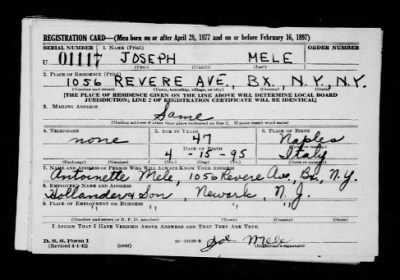 REGISTRATION CARD—(Men born on or after April 28, 1877 and on or before February 16, 1897)
SERIAL NUMBER 1. NAME (Print) ORDER NUMBER
U 01117 JOSEPH MELE
(First) (Middle) (Last)
2. PLACE OF RESIDENCE (Print)
1056 REVERE AVE., BX., N.Y., N.Y.
(Number and street) (Town, township, village, or city) (County) (State)
[THE PLACE OF RESIDENCE GIVEN ON THE LINE ABOVE WILL DETERMINE LOCAL BOARD
JURISDICTION; LINE 2 OF REGISTRATION CERTIFICATE WILL BE IDENTICAL]
3. MAILING ADDRESS
Same
[Mailing address if other than place indicated on line 2. If same insert word same]
4. TELEPHONE 5. AGE IN YEARS 6. PLACE OF BIRTH
none 47 Naples
DATE OF BIRTH (Town or county)
4-15-95 Italy
(Exchange) (Number) (Mo.) (Day) (Yr.) (State or country)
7. NAME AND ADDRESS OF PERSON WHO WILL ALWAYS KNOW YOUR ADDRESS
Antoinette Mele, 1056 Revere Ave. Bx., N.Y.
8. EMPLOYER'S NAME AND ADDRESS
Hollander & Son, Newark, N. J.
9. PLACE OF EMPLOYMENT OR BUSINESS
" " "
(Number and street or R. F. D. number) (Town) (County) (State)
I AFFIRM THAT I HAVE VERIFIED ABOVE ANSWERS AND THAT THEY ARE TRUE.
D. S. S. Form 1
(Revised 4-1-42) (over) Jos Mele